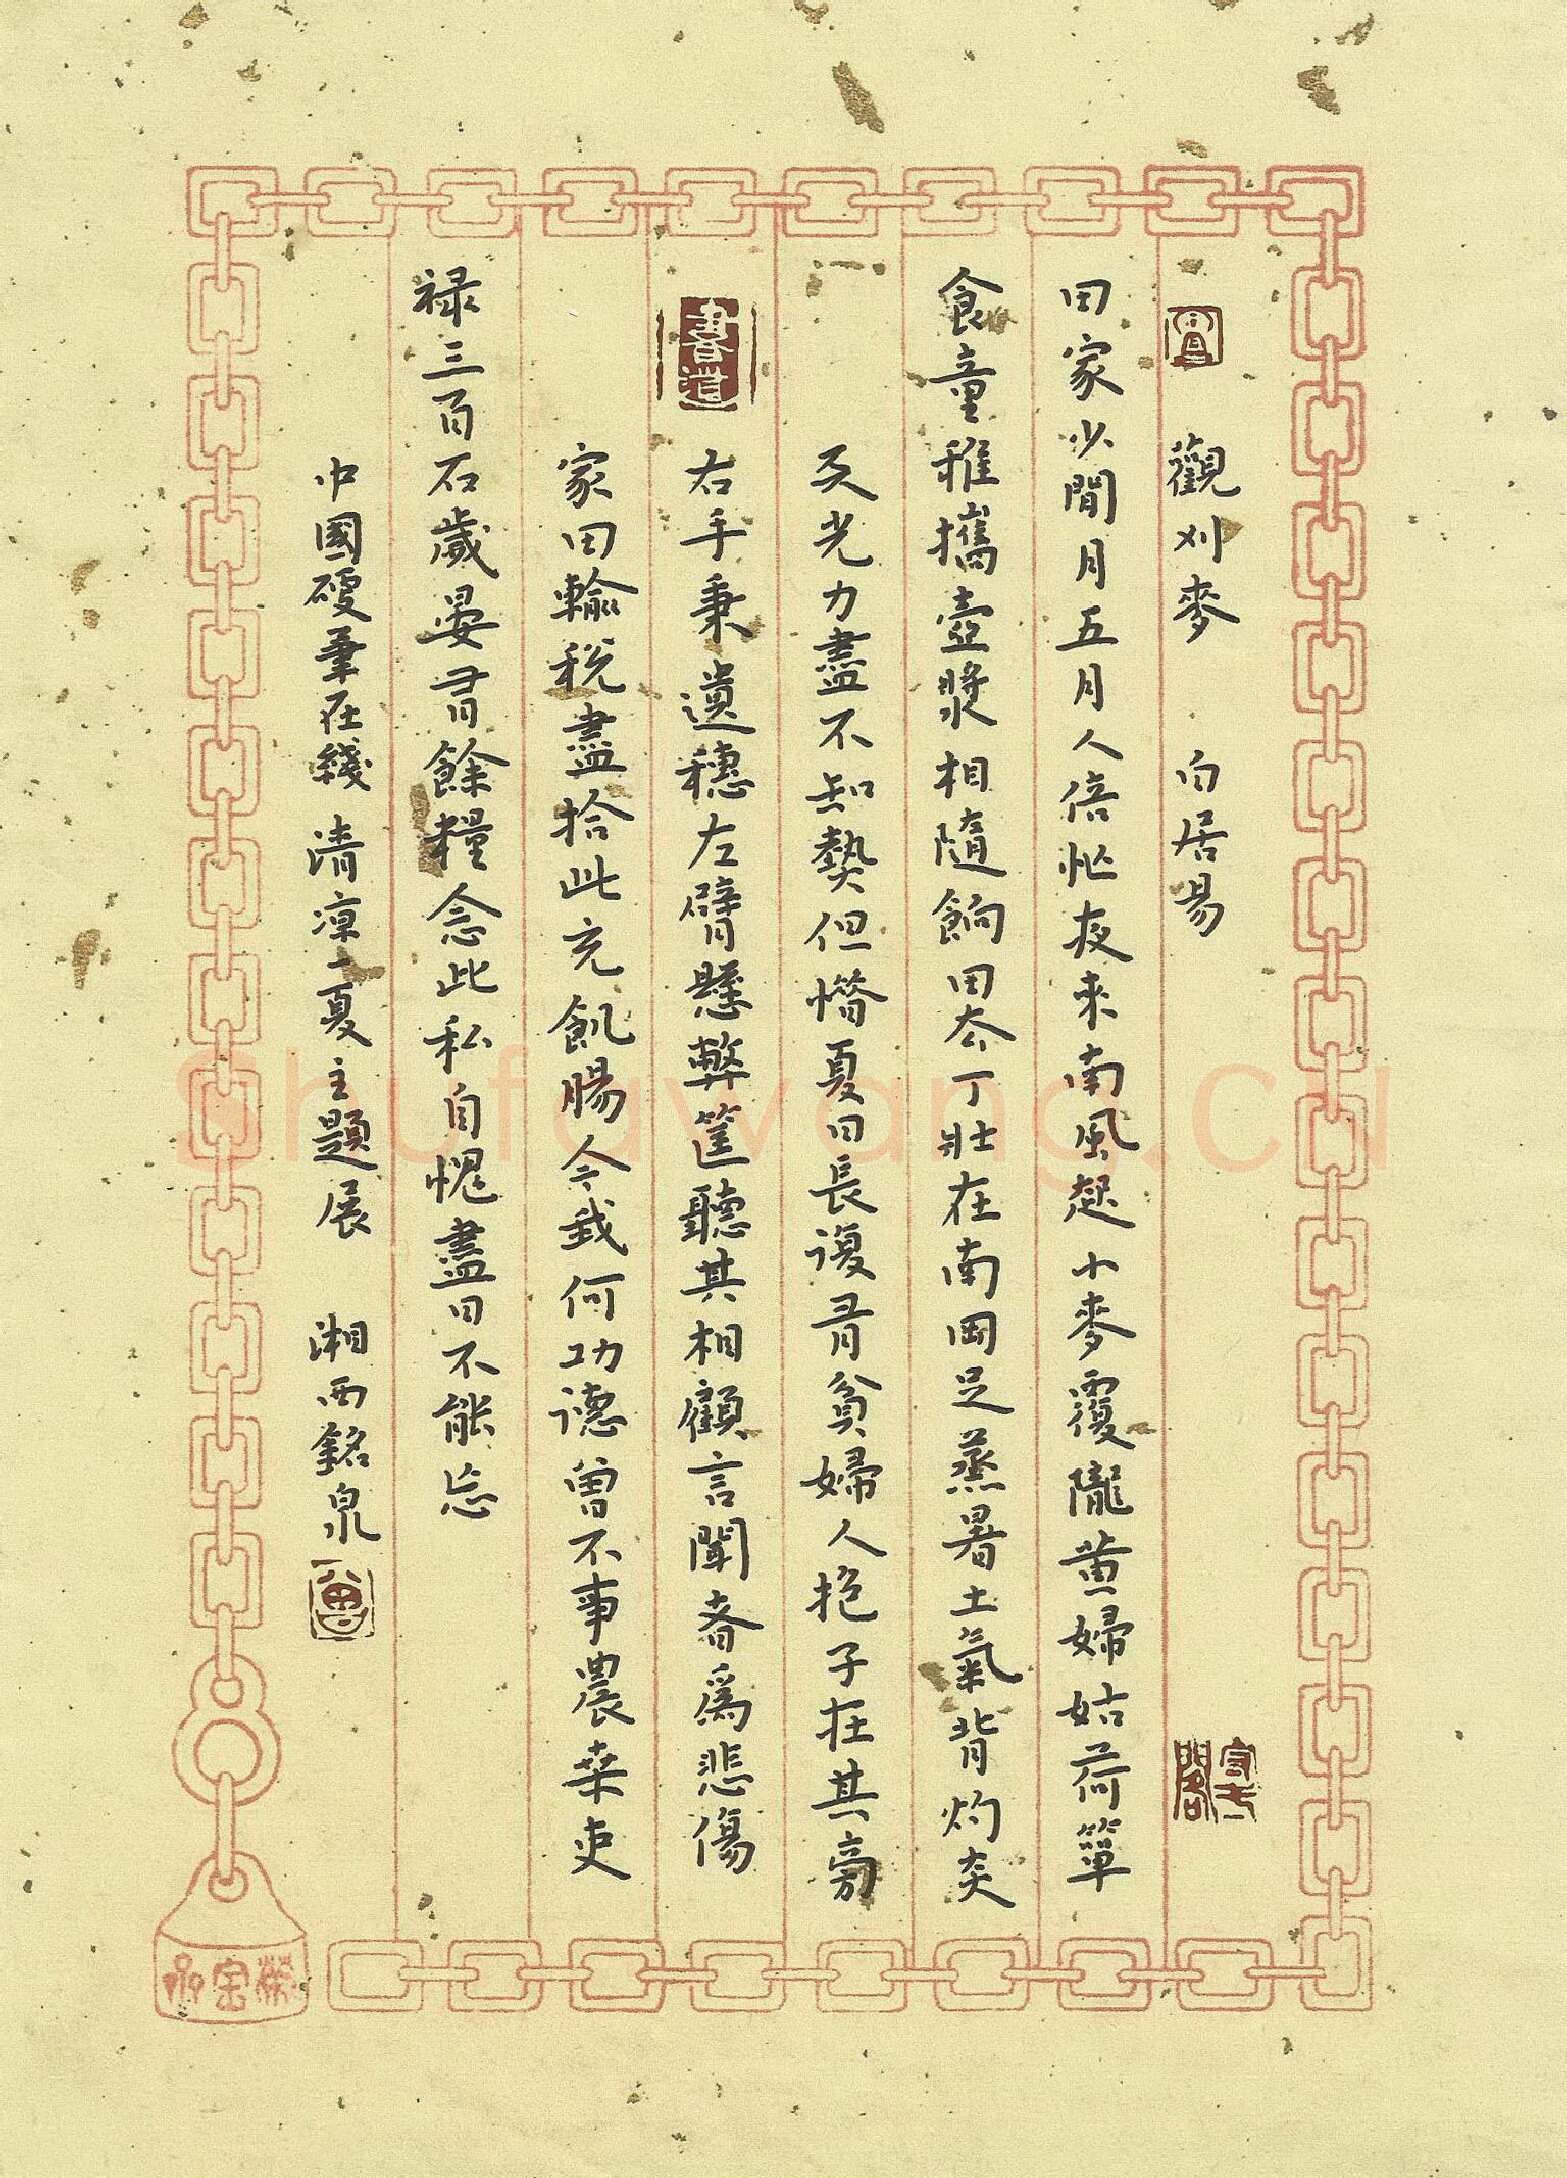 觀刈麥 白居易
田家少閒月五月人倍忙夜来南風起小麥覆隴黄婦姑荷簞
食童稚攜壺漿相隨餉田去丁壯在南岡足蒸暑土氣背灼炎
天光力盡不知熱但惜夏日長復有貧婦人抱子在其旁
右手秉遺穗左臂懸弊筐聽其相顧言聞者為悲傷
家田輸税盡拾此充飢腸今我何功德曾不事農桑吏
禄三百石歲晏有餘糧念此私自愧盡日不能忘
中國硬筆在綫 清凉一夏主題展 湘西銘泉
Shufawang.cn